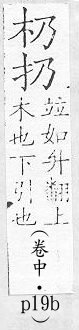 扔
竝如升翻上
木也下引也
(卷中·
p19b